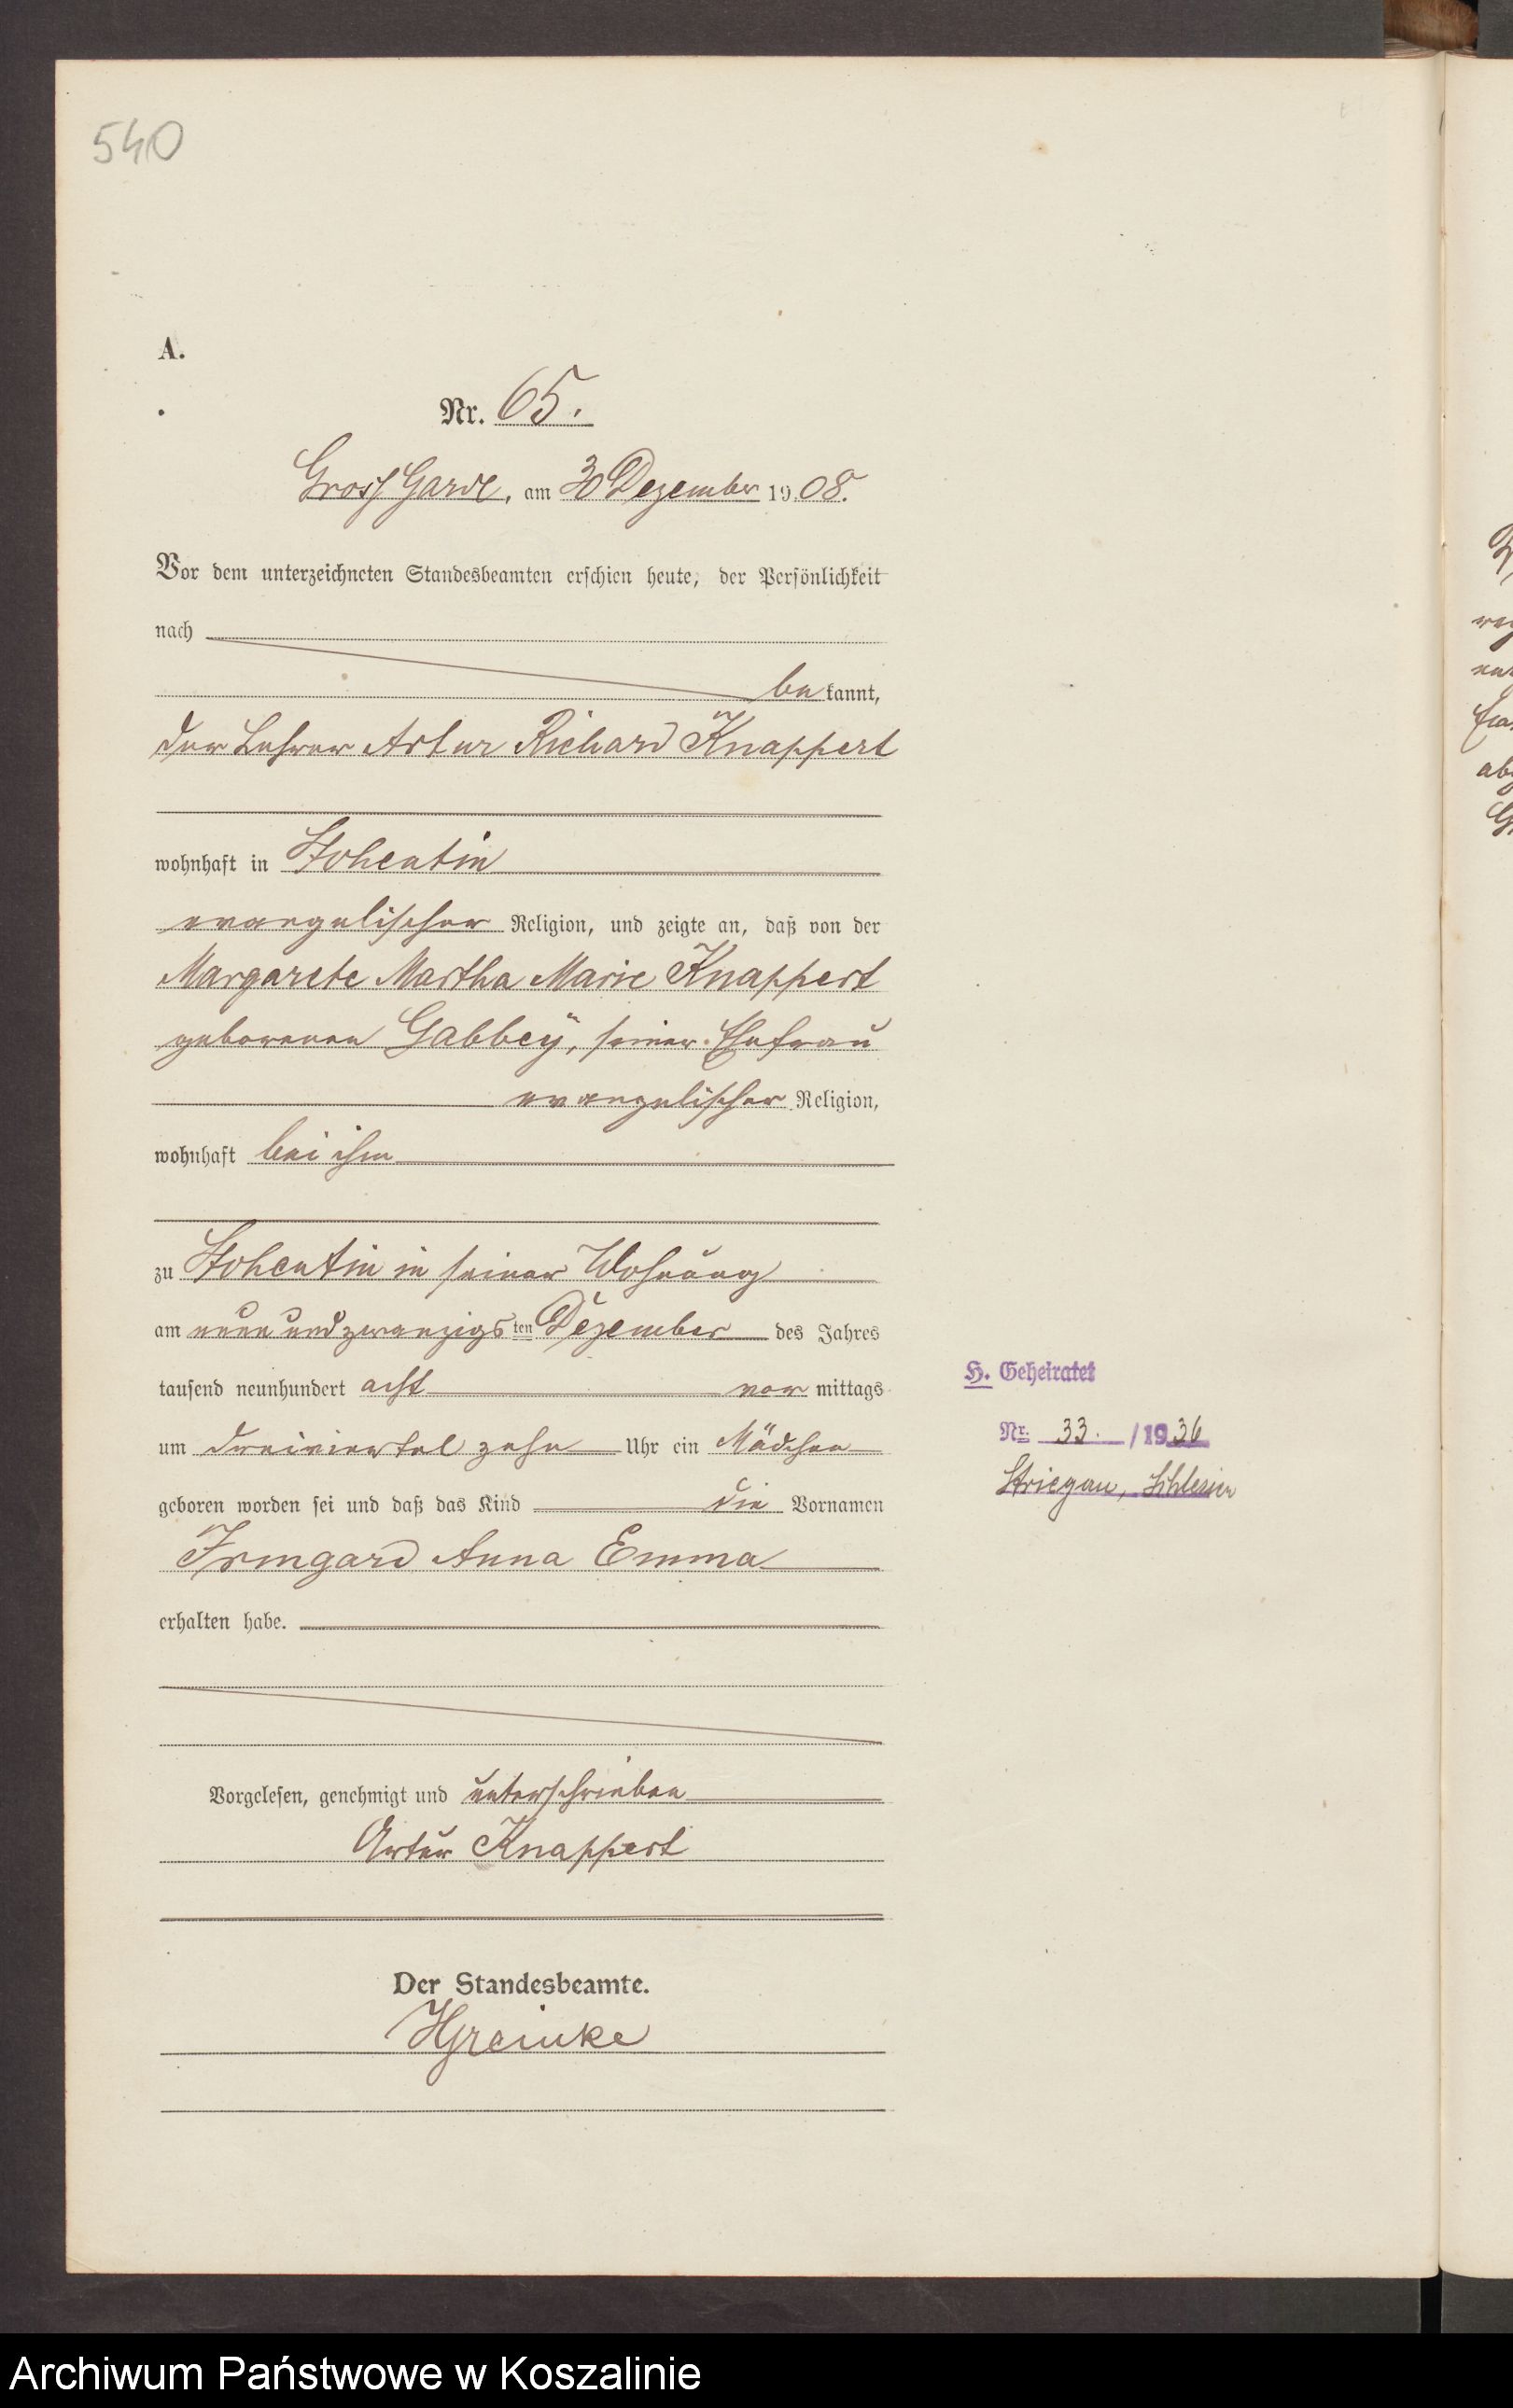 540
A.
Nr. 65.
Gross Garde, am 30 Dezember 1908.
Vor dem unterzeichneten Standesbeamten erschien heute, der Persönlichkeit
nach
bekannt,
der Lehrer Artur Richard Knappert
wohnhaft in Stohentin
evangelischer Religion, und zeigte an, daß von der
Margarete Martha Marie Knappert
geborenen Gabbeÿ, seiner Ehefrau
evangelischer Religion,
wohnhaft bei ihm
zu Stohentin in seiner Wohnung
am neun und zwanzigsten Dezember des Jahres
tausend neunhundert acht vormittags
um dreiviertel zehn Uhr ein Mädchen
geboren worden sei und daß das Kind die Vornamen
Irmgard Anna Emma
erhalten habe.
Vorgelesen, genehmigt und unterschrieben
Artur Knappert
Der Standesbeamte.
H. Geheiratet
Nr. 33. /1936
Striegau, Schlesien
Archiwum Państwowe w Koszalinie